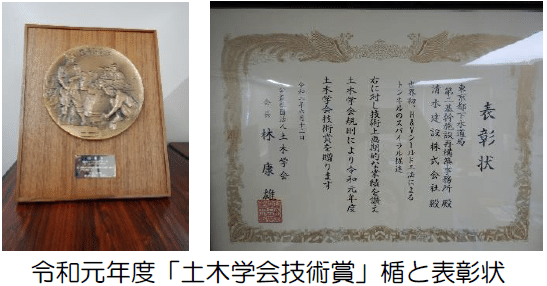 表彰状
東京都下水道局
第二基幹施設再構築事務所 殿
清水建設株式会社 殿
世界初、H&Vシールド工法による
トンネルのスパイラル掘進
右に対し技術上画期的な業績を讃え
土木学会規則により令和元年度
土木学会技術賞を贈ります
令和二年六月十二日
公益社団法人 土木学会
会長 林 康雄
令和元年度「土木学会技術賞」楯と表彰状